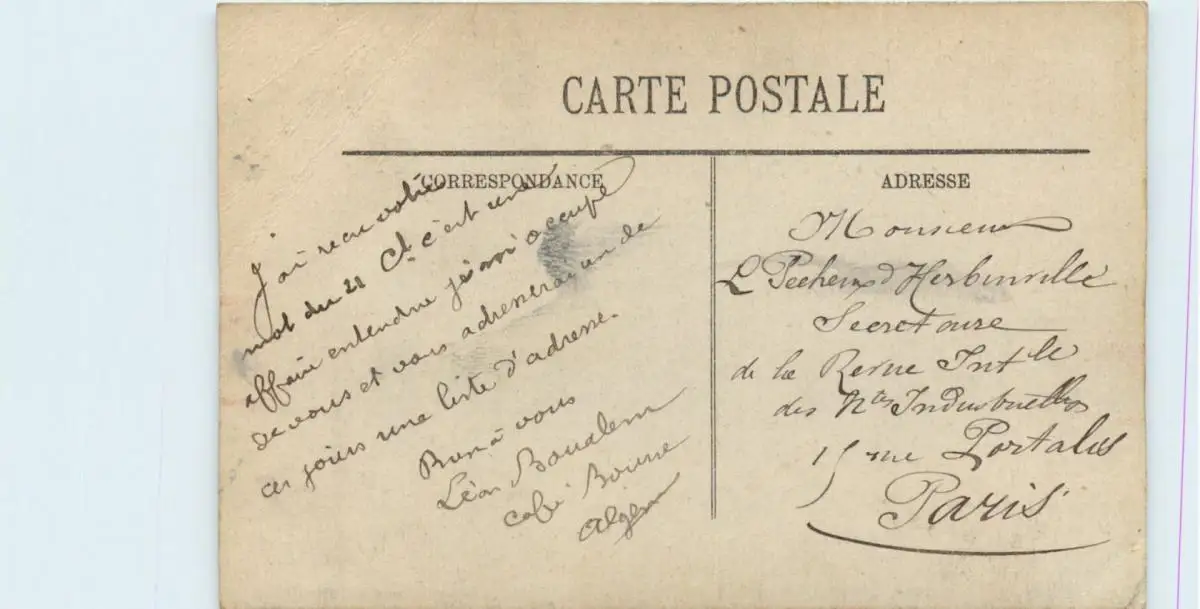 CARTE POSTALE
CORRESPONDANCE
J'ai reçu votre
mot du 21 Ct c'est une
affaire entendue je m'occupe
de vous et vous adresserai un de
ces jours une liste d'adresse.
Bien à vous
Léon Boualem
café Bourse
Alger
ADRESSE
Monsieur
L Pecheux d'Herbinville
Secretaire
de la Revue Intle
des Industrielles
15 rue Portalis
Paris